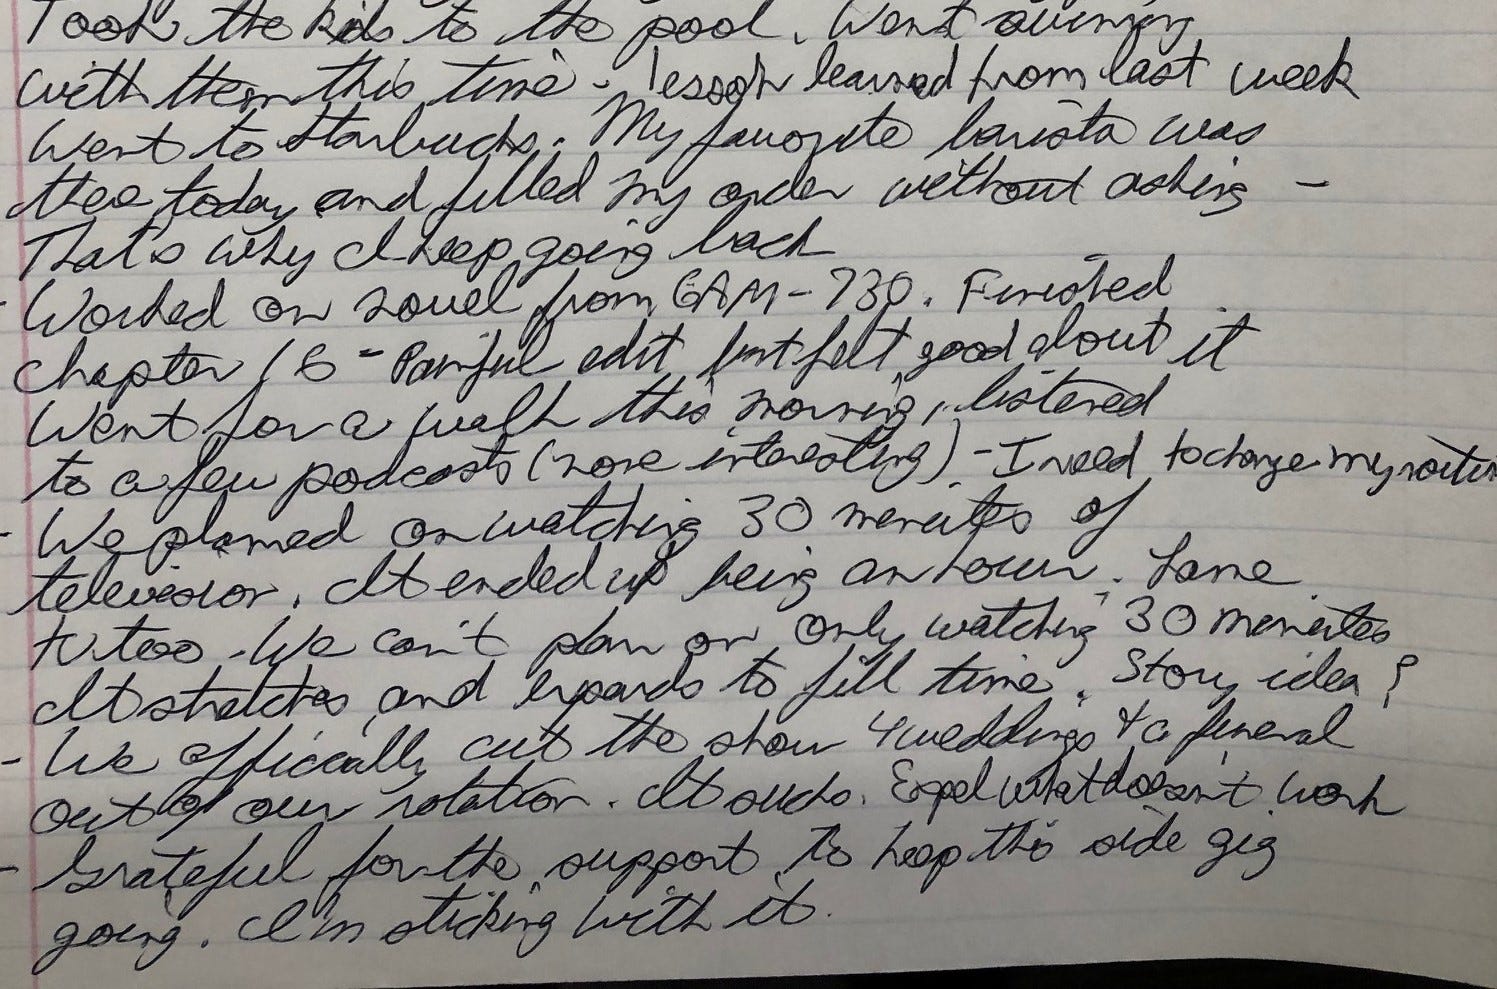 Took the kids to the pool. Went swimming
with them this time - lesson learned from last week
Went to Starbucks. My favorite barista was
there today and filled my order without asking -
That's why I keep going back
- Worked on novel from 6AM-730. Finished
chapter 16 - Painful edit but felt good about it
Went for a walk this morning, listened
to a few podcasts (none interesting) - I need to change my routin
- We planned on watching 30 minutes of
television. It ended up being an hour. Lame
tv too. We can't plan on only watching 30 minutes
It stretches and expands to fill time. Story idea?
- We officially cut the show 4 weddings & a funeral
out of our rotation. It sucks. Expel what doesn't work
- Grateful for the support to keep this side gig
going. I'm sticking with it.